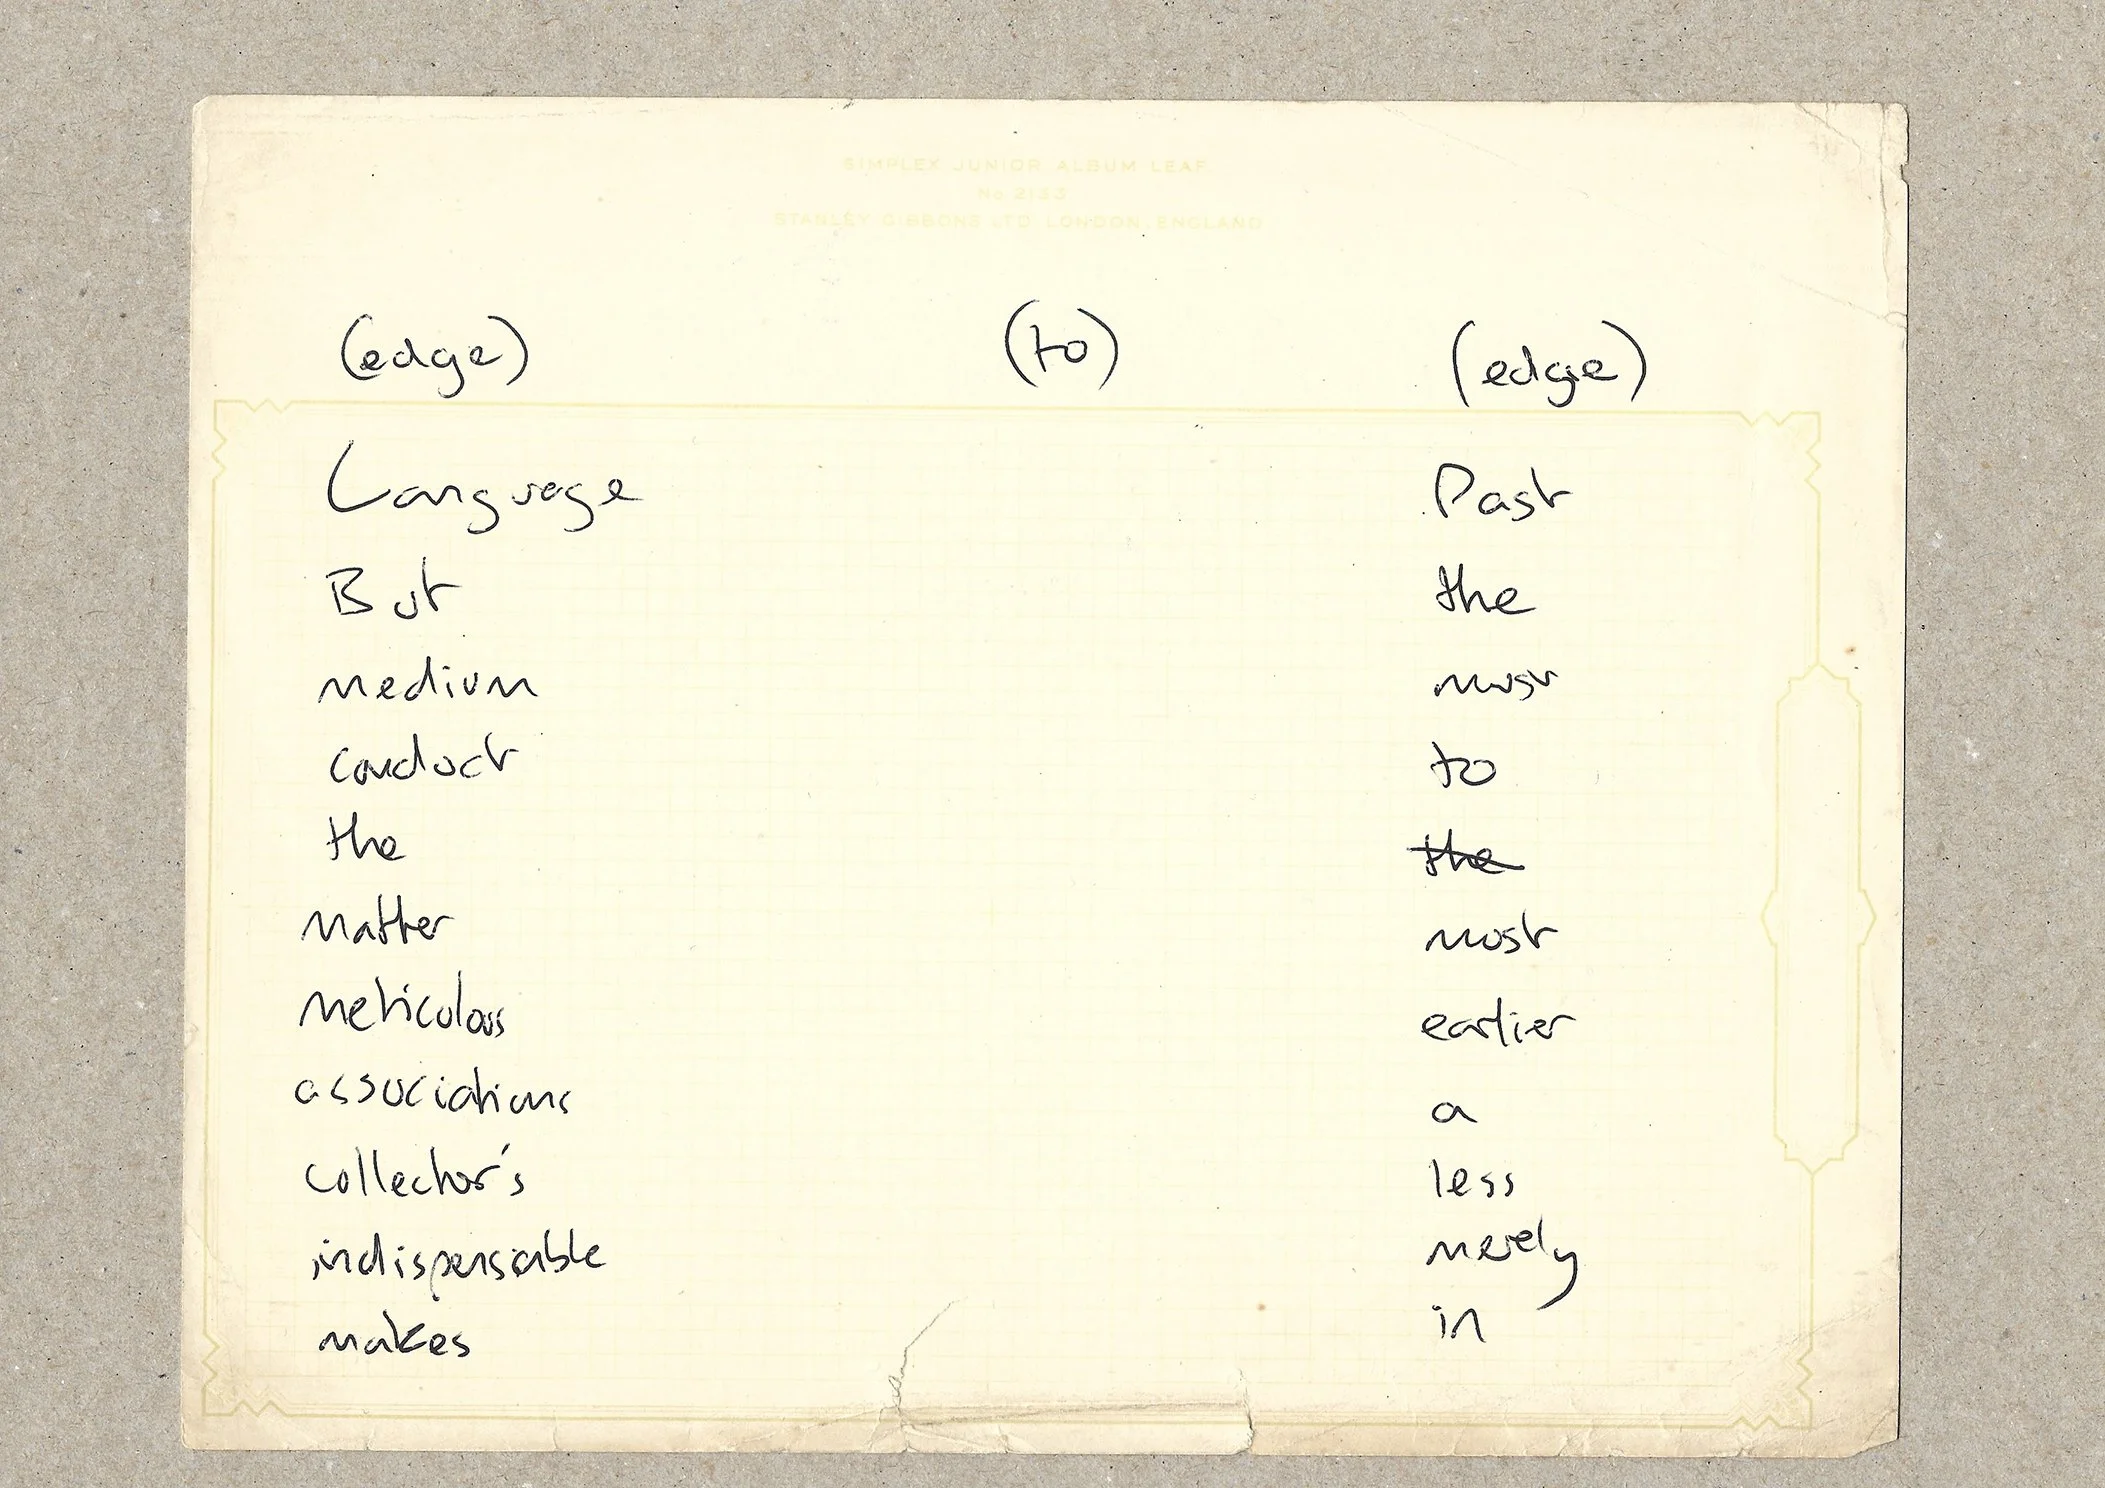 SIMPLEX JUNIOR ALBUM LEAF
No 2133
STANLEY GIBBONS LTD LONDON, ENGLAND
(edge) (to) (edge)
Language Past
But the
medium must
conduct to
the the
matter most
meticulous earlier
associations a
collector's less
indispensable merely
makes in